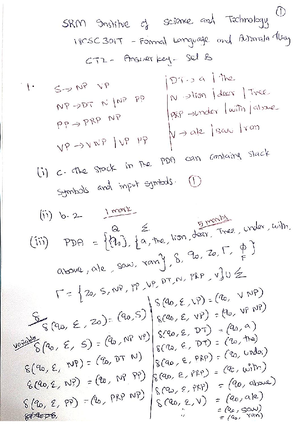 ①
SRM Institute of Science and Technology
18CSC301T - Formal Language and Automata Theory
CT2 - Answer key - Set B
1. S → NP VP
NP → DT N | NP PP
PP → PRP NP
VP → V NP | VP PP
DT → a | the
N → lion | deer | Tree
PRP → under | with | above
V → ate | saw | ran
(i) C - The stack in the PDA can contains stack
symbols and input symbols. ①
(ii) b. 2 1 mark
5 marks
(iii) PDA = {{q0}, {a, the, lion, deer, Tree, under, with,
Q Σ
above, ate, saw, ran}, δ, q0, Z0, Γ, ϕ}
F
Γ = {Z0, S, NP, PP, VP, DT, N, PRP, V} ∪ Σ
δ
δ(q0, ε, Z0) = (q0, S)
Variable δ(q0, ε, S) = (q0, NP VP)
δ(q0, ε, NP) = (q0, DT N)
δ(q0, ε, NP) = (q0, NP PP)
δ(q0, ε, PP) = (q0, PRP NP)
δ(q0, ε, VP) = (q0, V NP)
δ(q0, ε, VP) = (q0, VP NP)
δ(q0, ε, DT) = (q0, a)
δ(q0, ε, DT) = (q0, the)
δ(q0, ε, PRP) = (q0, under)
δ(q0, ε, PRP) = (q0, with)
δ(q0, ε, PRP) = (q0, above)
δ(q0, ε, V) = (q0, ate)
= (q0, saw)
= (q0, ran)